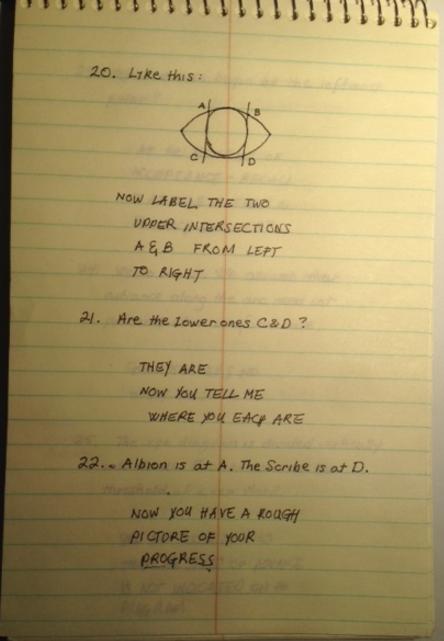 20. Like this:
A B
C D
NOW LABEL THE TWO
UPPER INTERSECTIONS
A & B FROM LEFT
TO RIGHT
21. Are the Lower ones C & D?
THEY ARE
NOW YOU TELL ME
WHERE YOU EACH ARE
22. Albion is at A. The Scribe is at D.
NOW YOU HAVE A ROUGH
PICTURE OF YOUR
PROGRESS